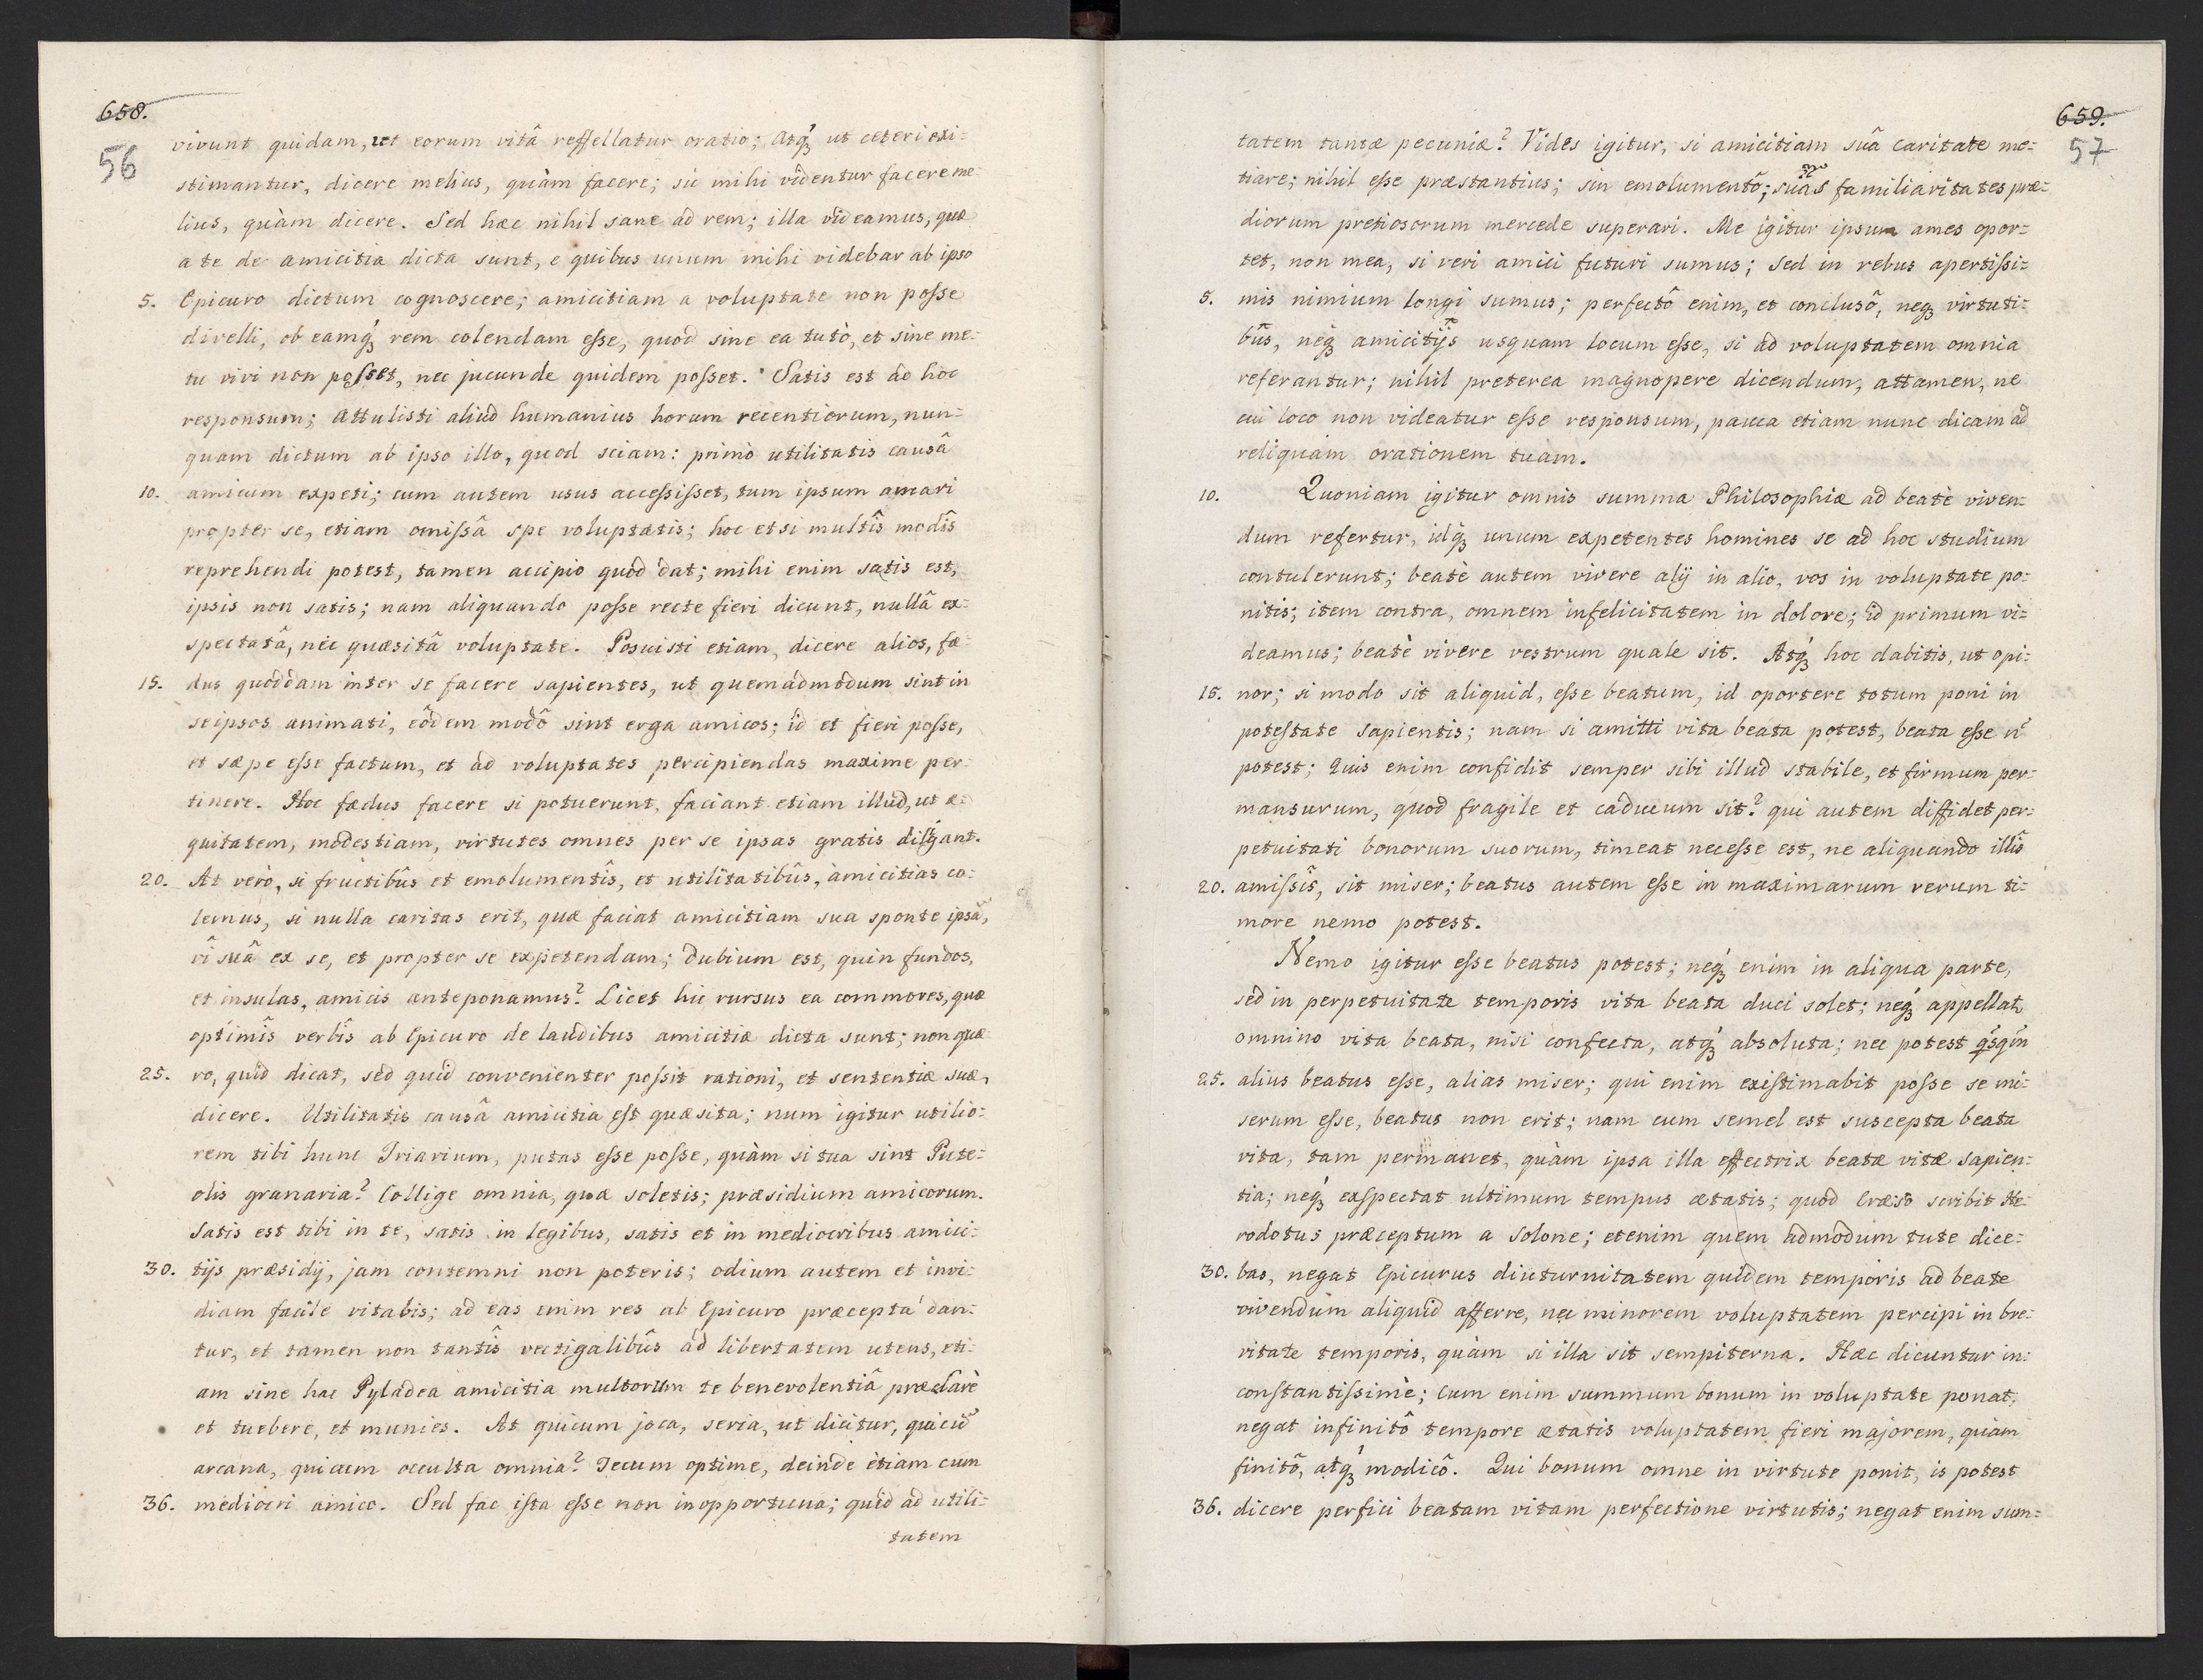 658.
56
vivunt quidam, ut eorum vitâ reffellatur oratio; atq́ꝫ ut ceteri exi=
stimantur, dicere melius, quàm facere; sic mihi videntur facere me=
lius, quàm dicere. Sed hæc nihil sane ad rem; illa videamus, quæ
a te de amicitia dicta sunt, e quibus unum mihi videbar ab ipso
5. Epicuro dictum cognoscere; amicitiam a voluptate non posse
divelli, ob eamq́ꝫ rem colendam esse, quod sine ea tutò, et sine me=
tu vivi non posset, nec jucunde quidem posset. Satis est ad hoc
responsum; attulisti aliud humanius horum recentiorum, nun=
quam dictum ab ipso illo, quod sciam: primò utilitatis causâ
10. amicum expeti; cum autem usus accessisset, tum ipsum amari
propter se, etiam omissâ spe voluptatis; hoc etsi multîs modîs
reprehendi potest, tamen accipio quòd dat; mihi enim satis est,
ipsis non satis; nam aliquando posse recte fieri dicunt, nullâ ex=
spectatâ, nec quæsitâ voluptate. Posuisti etiam, dicere alios, fæ=
15. dus quoddam inter se facere sapientes, ut quemadmodum sint in
seipsos animati, eôdem modô sint erga amicos; id et fieri posse,
et sæpe esse factum, et ad voluptates percipiendas maxime per=
tinere. Hoc fædus facere si potuerunt, faciant etiam illud, ut æ=
quitatem, modestiam, virtutes omnes per se ipsas gratis diligant.
20. At verò, si fructibûs et emolumentîs, et utilitatibûs, àmicitias co=
lemus, si nulla caritas erit, quæ faciat amicitiam sua sponte ipsã,
vî suâ ex se, et propter se expetendam; dubium est, quin fundos,
et insulas, amicis anteponamus? Licet hic rursus ea commores, quæ
optimîs verbîs ab Epicuro de laudibus amicitiæ dicta sunt; non quæ=
25. ro, quid dicat, sed quid convenienter possit rationi, et sententiæ suæ,
dicere. Utilitatis causâ amicitia est quæsita; num igitur utilio=
rem tibi hunc Triarium, putas esse posse, quàm si tua sint Pute=
olis granaria? Collige omnia, quæ soletis; præsidium amicorum.
Satis est tibi in te, satis in legibus, satis et in mediocribus amici=
30. tijs præsidij, jam contemni non poteris; odium autem et invi=
diam facile vitabis; ad eas enim res ab Epicuro præcepta dan=
tur, et tamen non tantîs vectigalibûs ad libertatem utens, eti=
am sine hac Pyladea amicitia multorum te benevolentiâ præclarè
et tuebere, et munies. At quicum joca, seria, ut dicitur, quicũ
arcana, quicum occulta omnia? Tecum optime, deinde etiam cum
36. mediocri amico. Sed fac ista esse non inopportuna; quid ad utili=
tatem
659.
57
tatem tantæ pecuniæ? Vides igitur, si amicitiam suâ caritate me=
tiare; nihil esse præstantius; sin emolumentô; suas familiaritates præ=
diorum pretiosorum mercede superari. Me igitur ipsum ames opor=
tet, non mea, si veri amici futuri sumus; sed in rebus apertissi=
5. mis nimium longi sumus; perfectô enim, et conclusô, neqꝫ virtuti=
bûs, neq́ꝫ amicitijs usquam locum esse, si ad voluptatem omnia
referantur; nihil preterea magnopere dicendum, attamen, ne
cui loco non videatur esse responsum, pauca etiam nunc dicam ad
reliquam orationem tuam.
10. Quoniam igitur omnis summa Philosophiæ ad beatè viven=
dum refertur, idq́ꝫ unum expetentes homines se ad hoc studium
contulerunt; beatè autem vivere alij in alio, vos in voluptate po=
nitis; item contra, omnem infelicitatem in dolore; id primum vi=
deamus; beatè vivere vestrum quale sit. Atq́ꝫ hoc dabitis, ut opi=
15. nor; si modo sit aliquid, esse beatum, id oportere totum poni in
potestate sapientis; nam si amitti vita beata potest, beata esse ñ
potest; Quis enim confidit semper sibi illud stabile, et firmum per=
mansurum, quod fragile et caducum sit? qui autem diffidet per=
petuitati bonorum suorum, timeat necesse est, ne aliquando illîs
20. amissîs, sit miser; beatus autem esse in maximarum rerum ti=
more nemo potest.
Nemo igitur esse beatus potest; neq́ꝫ enim in aliqua parte,
sed in perpetuitate temporis vita beata duci solet; neq́ꝫ appellat
omnino vita beata, nisi confecta, atq́ꝫ absoluta; nec potest q̃sq̃m
25. alius beatus esse, alias miser; qui enim existimabit posse se mi=
serum esse, beatus non erit; nam cum semel est suscepta beata
vita, tam permanet, quàm ipsa illa effectrix beatæ vitæ sapien=
tia; neq́ꝫ exspectat ultimum tempus ætatis; quod Cræso scribit He=
rodotus præceptum a Solone; etenim quem admodum tute dice=
30. bas, negat Epicurus diuturnitatem quidem temporis ad beate
vivendum aliquid afferre, nec minorem voluptatem percipi in bre=
vitate temporis, quàm si illa sit sempiterna. Hæc dicuntur in=
constantissimè; cum enim summum bonum in voluptate ponat,
negat infinitô tempore ætatis voluptatem fieri majorem, quàm
finitô, atq́ꝫ modicô. Qui bonum omne in virtute ponit, is potest
36. dicere perfici beatam vitam perfectione virtutis; negat enim sum=